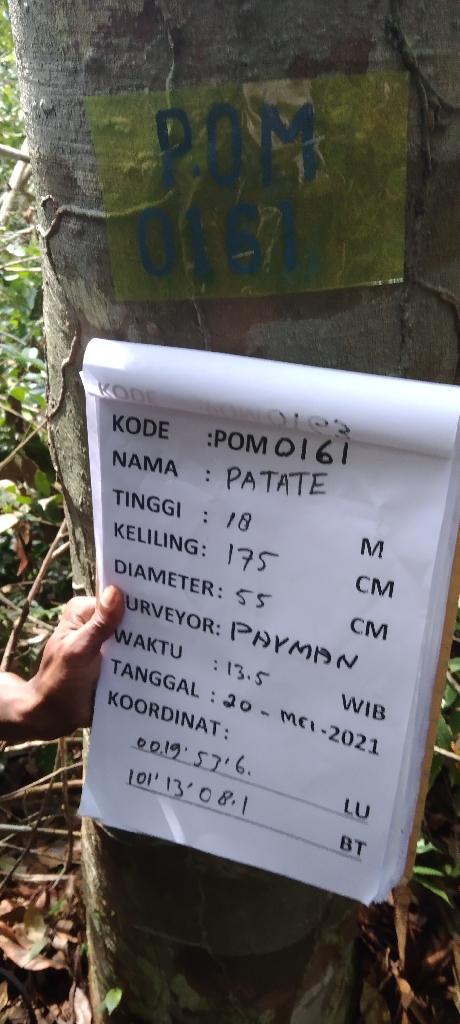 P.OM
0161.
KODE :POM 0163
KODE :POM 0161
NAMA : PATATE
TINGGI : 18 M
KELILING: 175 CM
DIAMETER: 55 CM
SURVEYOR: PAYMAN
WAKTU : 13.5 WIB
TANGGAL : 20 - MEI-2021
KOORDINAT:
00.19'53'6. LU
101'13'08.1 BT